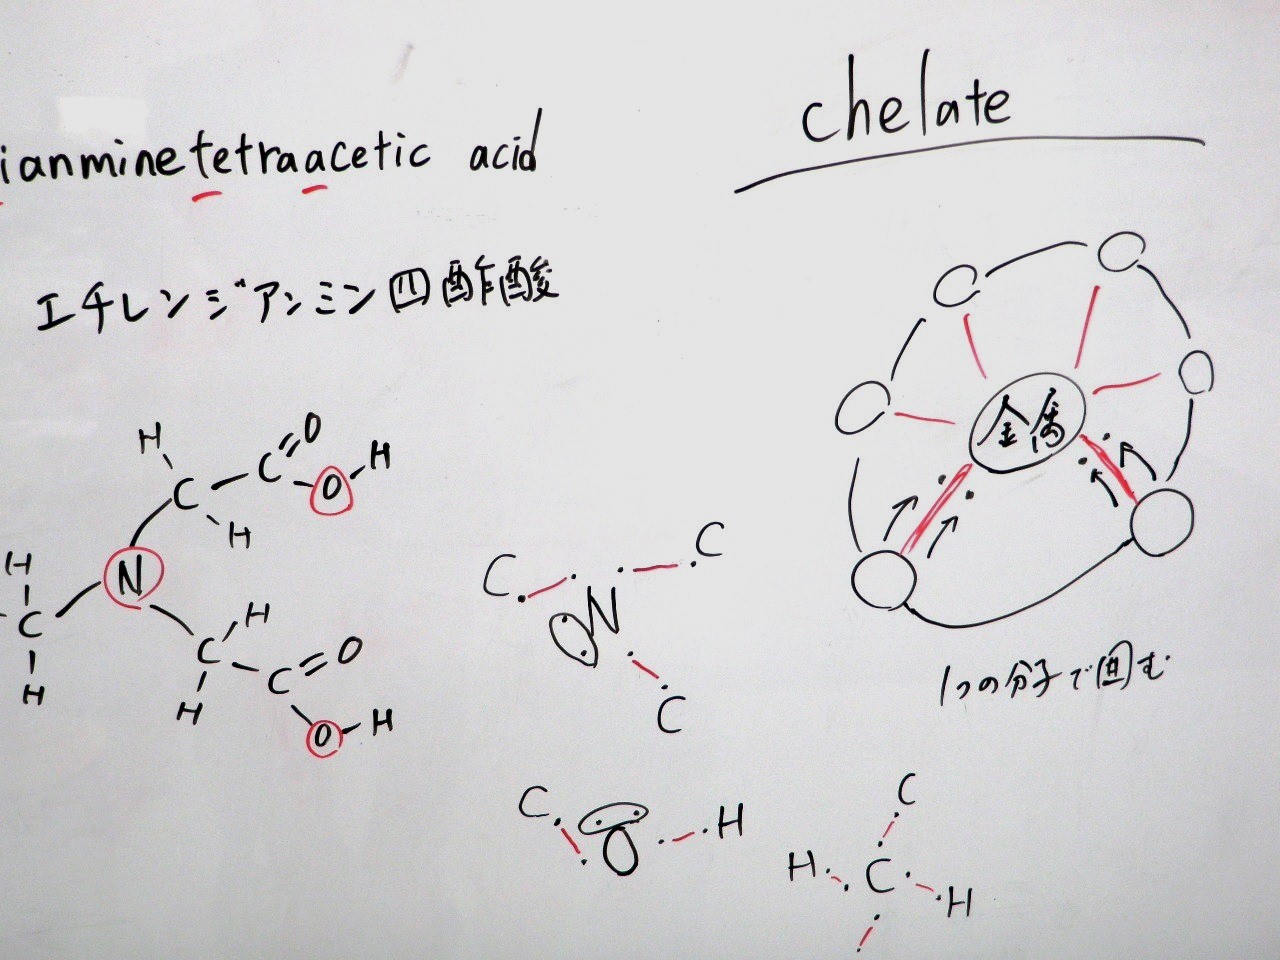 ianminetetraacetic acid
chelate
エチレンジアンミン四酢酸
金属
1つの分子で囲む
H
C
H
C
O
O
H
N
H
C
H
C
H
H
C
O
O
H
C
C
N
C
C
O
H
C
H
C
H